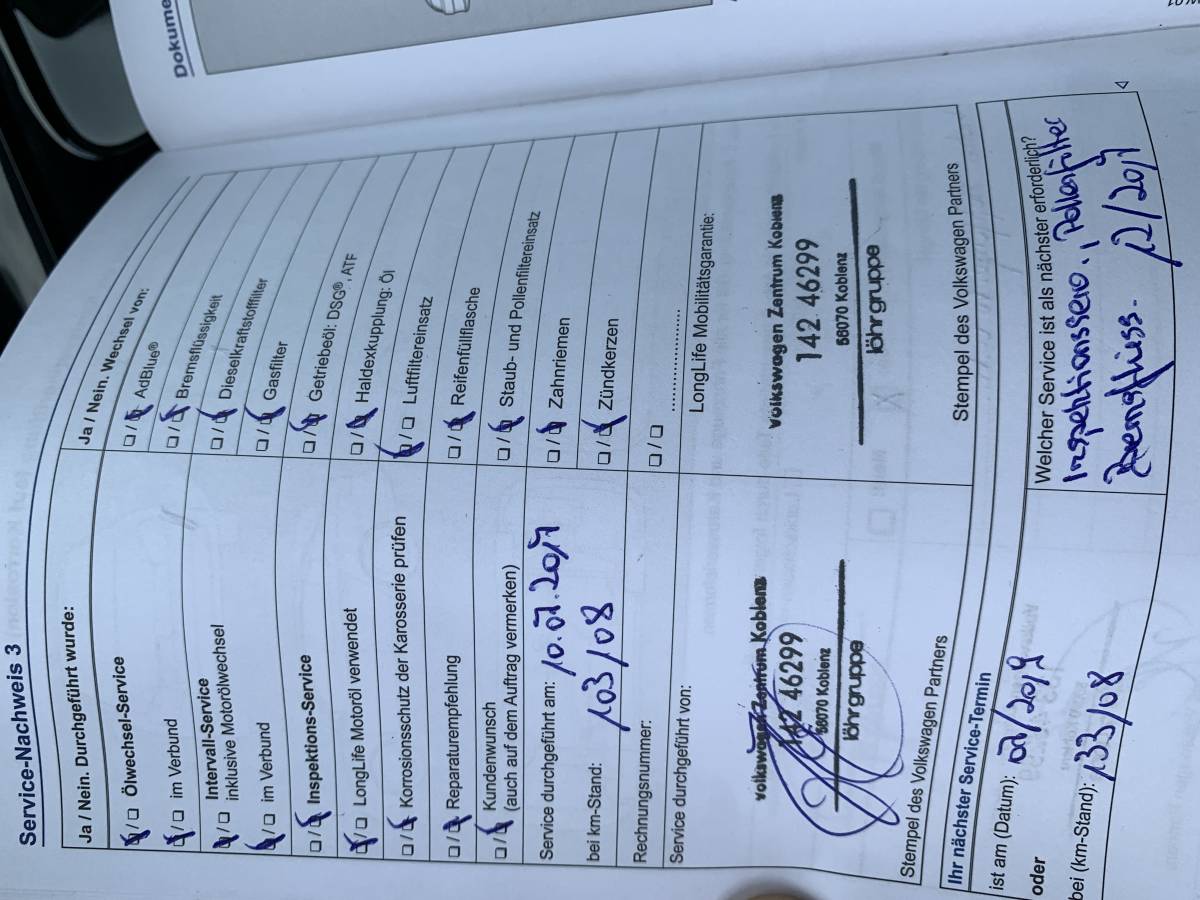 Dokume
Service-Nachweis 3
Ja / Nein. Durchgeführt wurde:
☒/☐ Ölwechsel-Service
☒/☐ im Verbund
☒/☐ Intervall-Service
inklusive Motorölwechsel
☒/☐ im Verbund
☐/☒ Inspektions-Service
☒/☐ LongLife Motoröl verwendet
☐/☒ Korrosionsschutz der Karosserie prüfen
☐/☒ Reparaturempfehlung
☐/☒ Kundenwunsch
(auch auf dem Auftrag vermerken)
Service durchgeführt am: 10.07.2017
bei km-Stand: 103108
Rechnungsnummer:
Service durchgeführt von:
Volkswagen Zentrum Koblenz
142 46299
56070 Koblenz
löhrgruppe
Stempel des Volkswagen Partners
Ja / Nein. Wechsel von:
☐/☒ AdBlue®
☐/☒ Bremsflüssigkeit
☐/☒ Dieselkraftstofffilter
☐/☒ Gasfilter
☐/☒ Getriebeöl: DSG®, ATF
☐/☒ Haldexkupplung: Öl
☒/☐ Luftfiltereinsatz
☐/☒ Reifenfüllflasche
☐/☒ Staub- und Pollenfiltereinsatz
☐/☒ Zahnriemen
☐/☒ Zündkerzen
☐/☐ ........................
LongLife Mobilitätsgarantie:
Volkswagen Zentrum Koblenz
142 46299
56070 Koblenz
löhrgruppe
Stempel des Volkswagen Partners
Ihr nächster Service-Termin
ist am (Datum): 07/2019
oder
bei (km-Stand): 133108
Welcher Service ist als nächster erforderlich?
Inspektionsserv., Pollenfilter
Bremsflüss. 12/2017